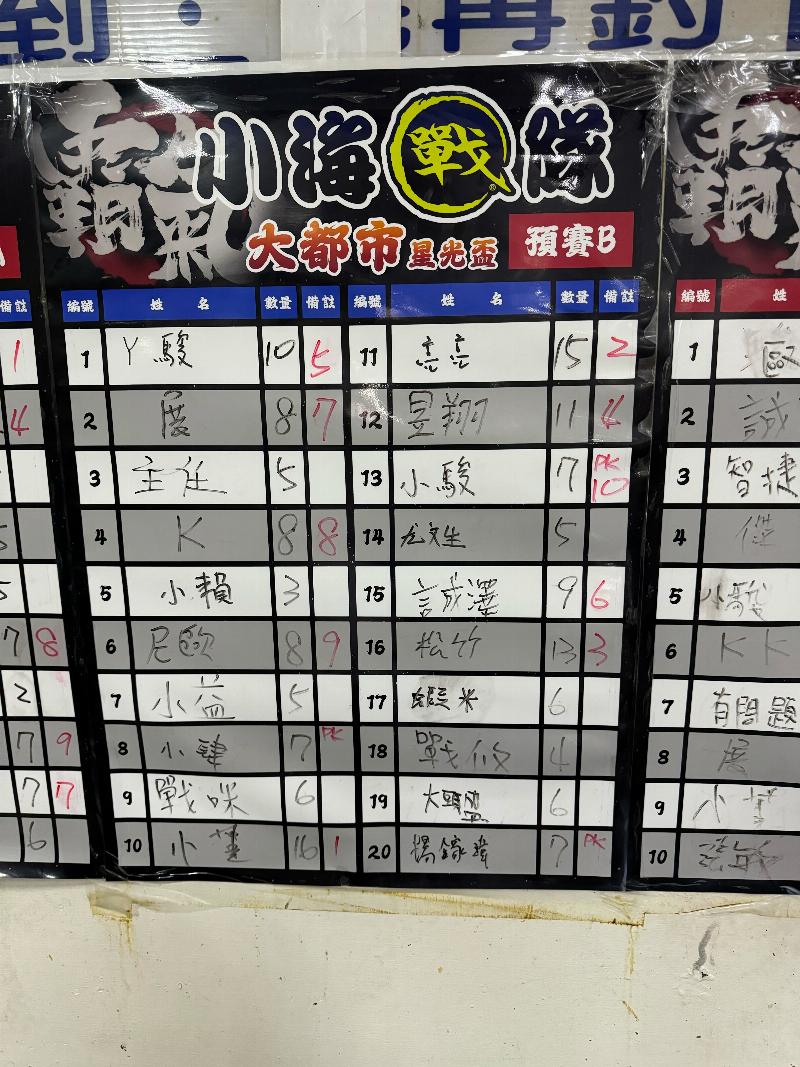 小海戰隊
大都市星光盃 預賽B
編號 姓名 數量 備註 編號 姓名 數量 備註
1 丫駿 10 5 11 15 2
2 展 8 7 12 昱翔 11 4
3 主任 5 13 小駿 7 PK 10
4 K 8 8 14 尤文生 5
5 小賴 3 15 誠澤 9 6
6 尼歐 8 9 16 松竹 13 3
7 小益 5 17 蝦米 6
8 小肆 7 PK 18 戰攸 4
9 戰咪 6 19 大頭盟 6
10 小 16 1 20 楊鎵瑋 7 PK
備註
1
4
5
5
7 8
2
7 9
7 7
6
編號 姓
1
2 誠
3 智捷
4 傑
5 小駿
6 K K
7 有問題
8 展
9 小
10